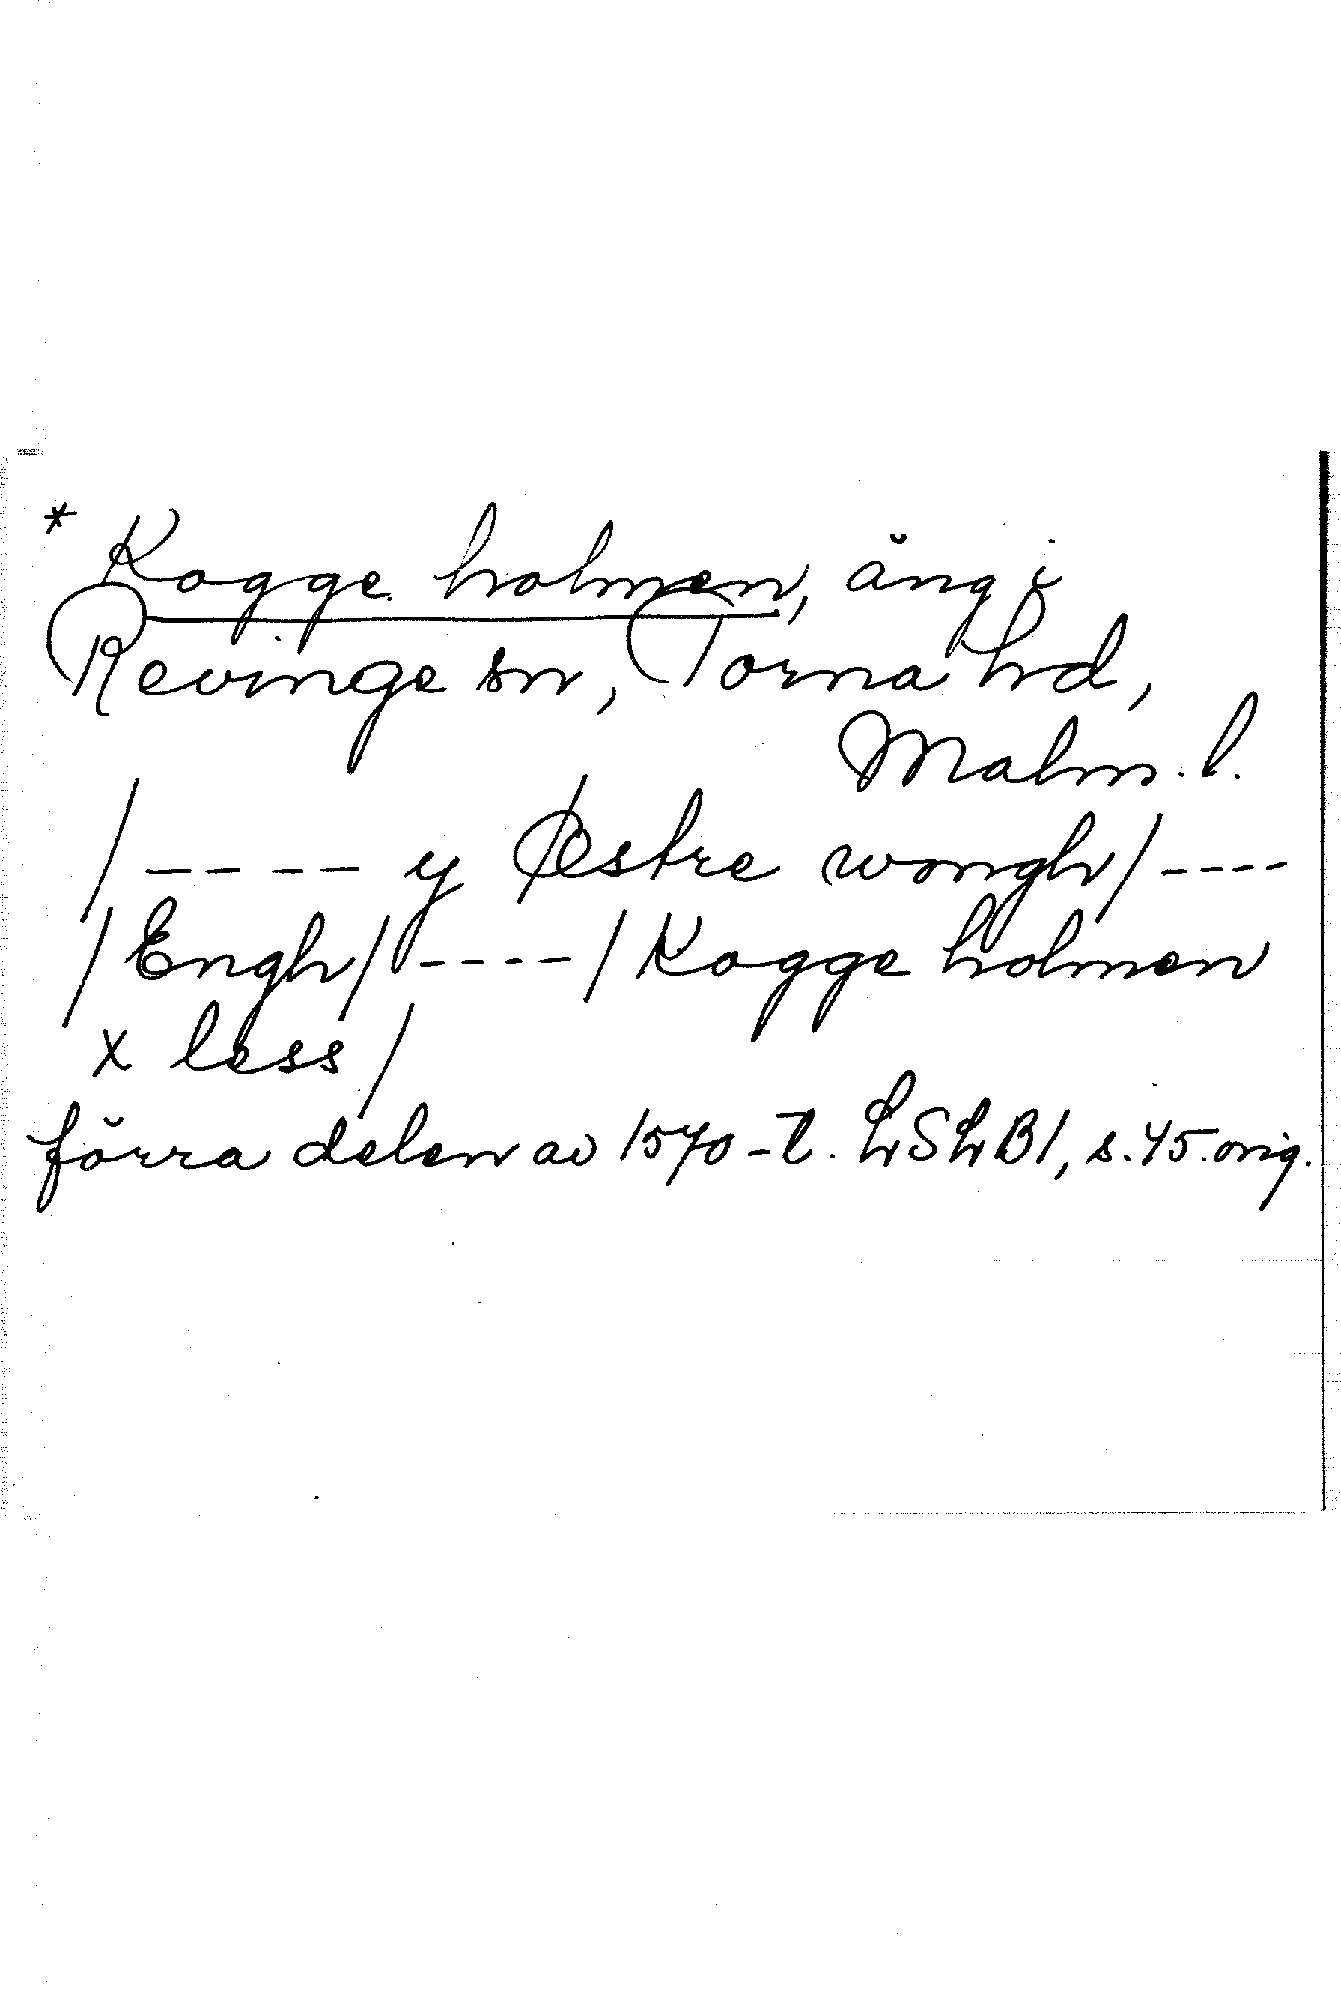 * Kogge holmen, äng i
Revinge sn, Torna hd,
Malm. l.
/---- y Østre wongh/----
/Engh/----/Kogge holmen
x less/
förra delen av 1570-t. LSLB1, s. 45. orig.